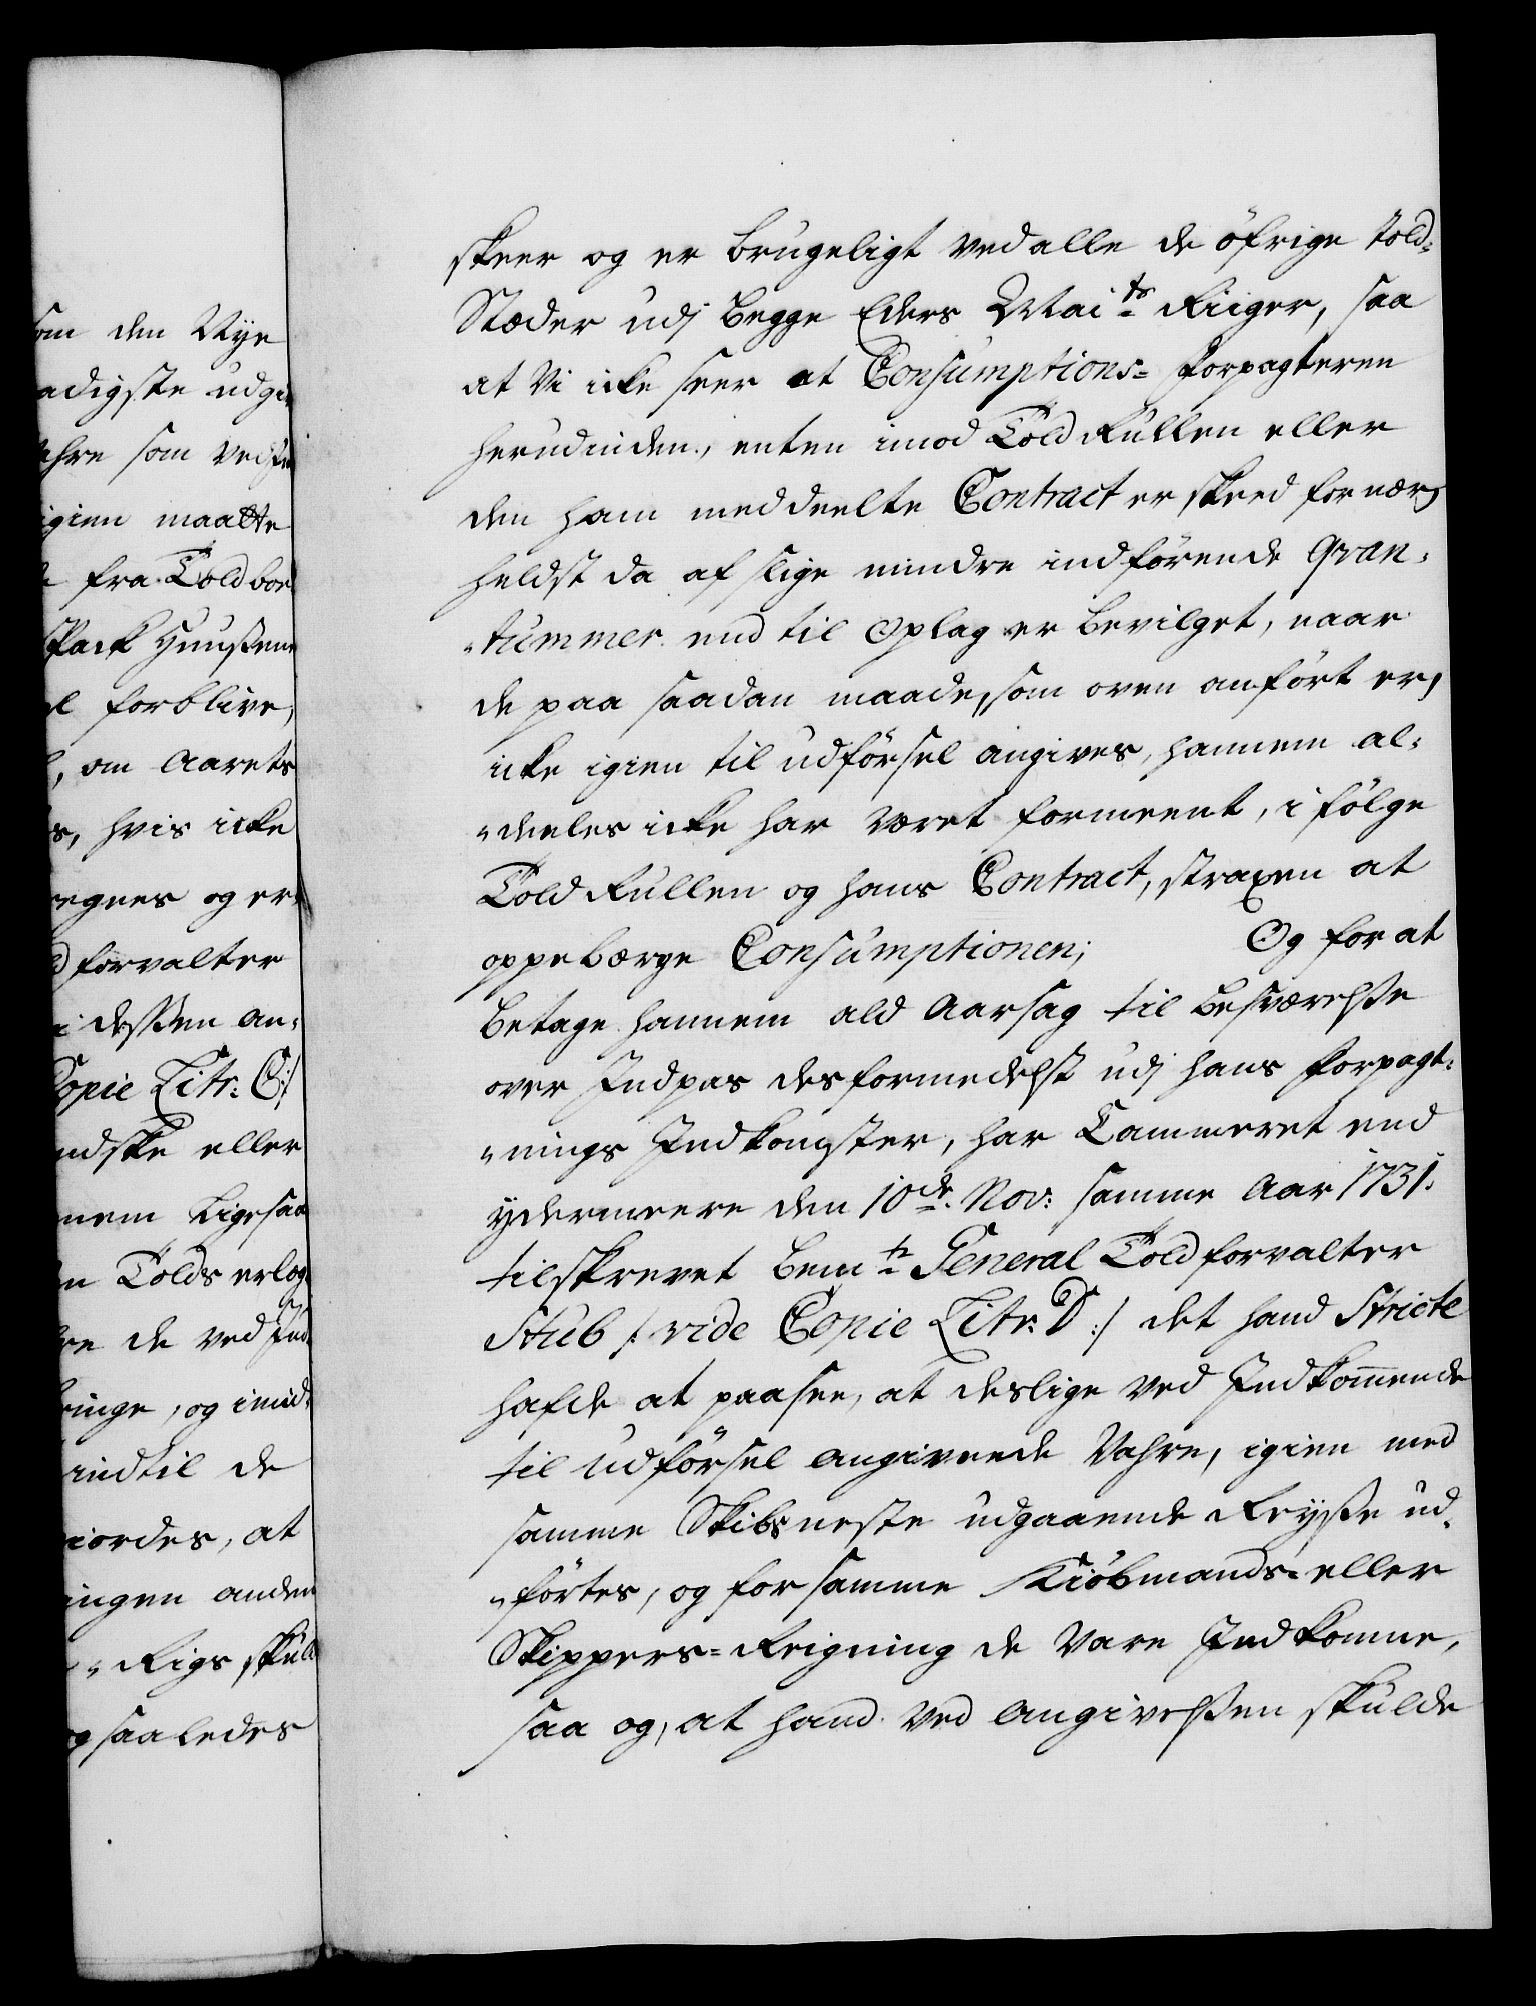 som den Nye
adigste udgi
ahre som ved
igien maatte
fra Told bod
Pack Huußene
forblive,
, om Aarets
s, hvis icke
regnes og er
d forvalter
i desßen an-
Copie Litr: C:/
ndske eller
nem Ligesaa
n Tolds erlæg
re de ved Ind
ringe, og imid-
indtil de
giordes, at
ingen anden
Rigs skuld
og saaledes
skeer og er brugeligt ved alle de öfrige told-
Stæder udj begge Eders Mai:ts Riiger, saa
at Vi icke seer at Consumptions-Forpagteren
herudinden, enten imod Told Rullen eller
den ham meddeelte Contract er skeed fornær,
heldst da af slige mindre indförende Qvan-
-tummer end til Oplag er bevilget, naar
de paa saadan maade, som oven anfört er,
icke igien til udförsel angives, hannem al-
-deeles icke har været formeent, i fölge
Told Rullen og hans Contract, straxen at
oppebærge Consumptionen; Og for at
betage hannem ald Aarsag til besværelße
over Indpas desformedelst udj hans Forpagt-
-nings Indkomster, har Cammeret end
ydermeere den 10de Nov: samme Aar 1731.
tilskrevet bemte General Toldforvalter
Stub /: vide Copie Litr: D :/ det hand Stricte
hafde at paasee, at deslige ved Indkom̄ende
til udförsel angivende Vahre, igien med
samme Skibs neste udgaaende Reyße ud-
-förtes, og for samme Kiöbmands- eller
Skippers-Reigning de Vare Indkomne,
saa og, at hand ved Angivelßen skulde